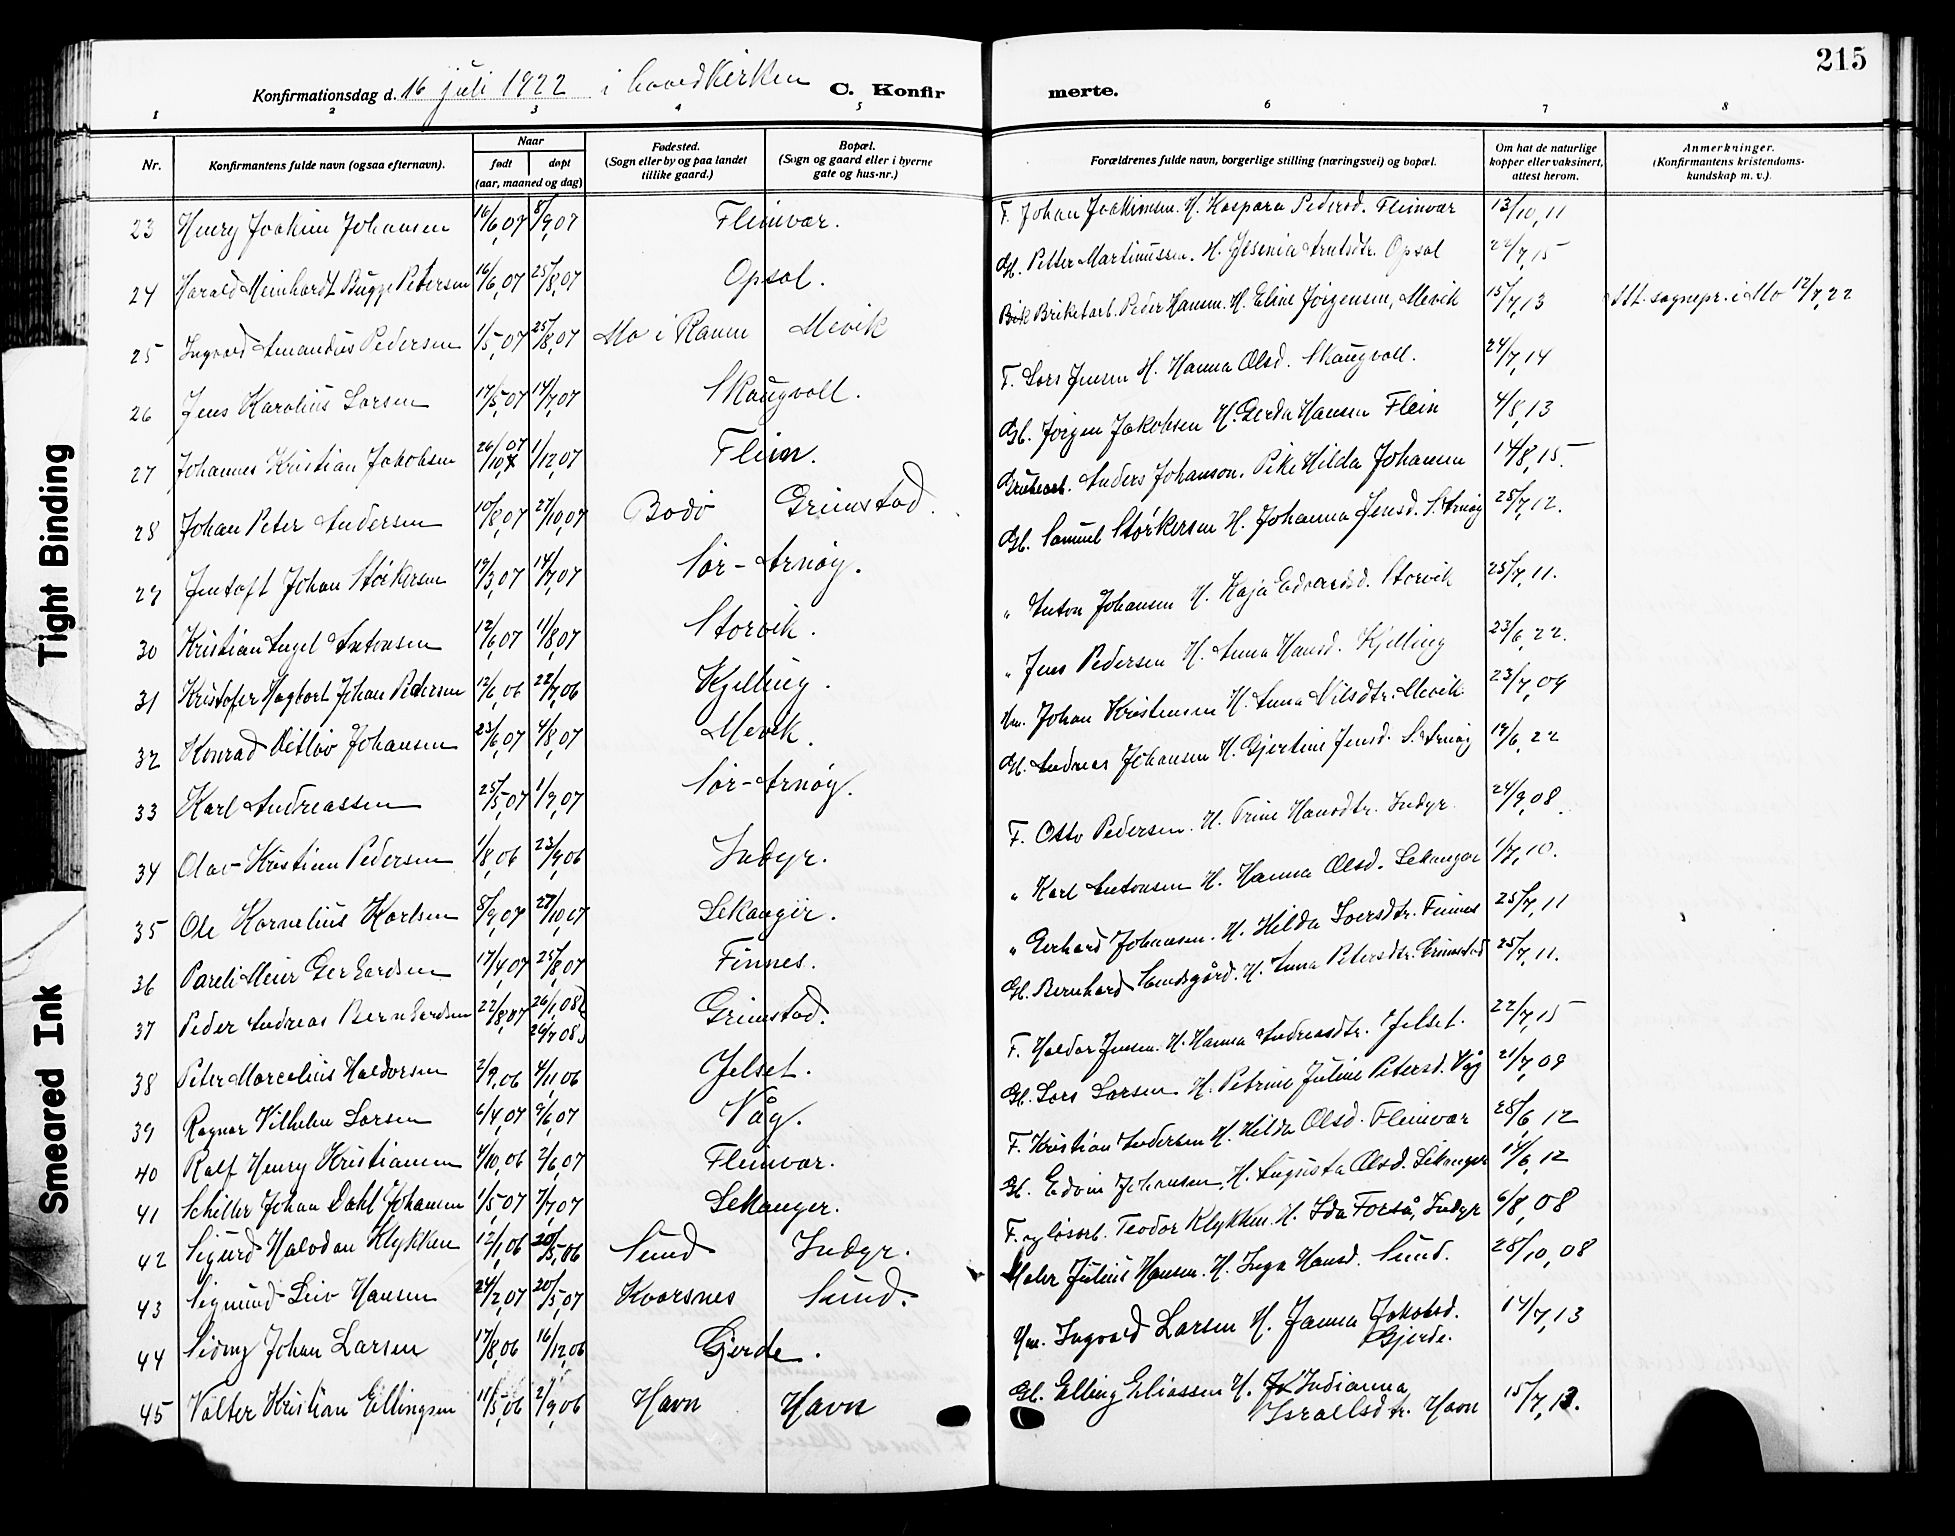 215
Konfirmationsdag d. 16 juli 1922 i hovedkirken C. Konfirmerte.
1 2 3 4 5 6 7 8
Nr. Konfirmantens fulde navn (ogsaa efternavn). Naar født døpt (aar, maaned og dag) Fødested. (Sogn eller by og paa landet tillike gaard.) Bopæl. (Sogn og gaard eller i byerne gate og hus-nr.) Forældrenes fulde navn, borgerlige stilling (næringsvei) og bopæl. Om hat de naturlige kopper eller vaksinert, attest herom. Anmerkninger. (Konfirmantens kristendomskundskap m. v.).
23 Henry Joakim Johansen 16/6,07 8/9,07 Fleinvær. F. Johan Joakimsen. H. Kaspara Pedersd. Fleinvær 13/10,11
24 Harald Meinhardt Bugge Petersen 16/6,07 25/8,07 Opsal. Gb. Petter Martinussen. H. Arntsdtr. Opsal 22/7,15
25 Ingvard Amandus Pedersen 1/5,07 25/8,07 Mo i Ranen Mevik Briketarb. Peder Hansen. H. Eline Jørgensen, Mevik 15/7,13 Att. sognepr. i Mo 12/7,22
26 Jens Karolius Larsen 17/5,07 14/7,07 Skaugvoll. F. Lars Jensen H. Hanna Olsd. Skaugvoll. 24/7,14
27 Johannes Kristian Jakobsen 26/10,07 1/12,07 Flein. Gb. Jørgen Jakobsen H. Gerda Hansen Flein 4/8,13
28 Johan Peter Andersen 10/8,07 27/10,07 Bodø Grimstad. Grubearb. Anders Johanson. Pike Hilda Johansen 14/8,15.
29 Jentoft Johan Størkersen 17/3,07 14/7,07 Sør-Arnøy. Gb. Samuel Størkersen H. Johanna Jensd. S. Arnøy 25/7,12.
30 Kristian Angel Antonsen 12/6,07 11/8,07 Storvik. " Anton Johansen H. Kaja Edvardsd. Storvik 25/7,11.
31 Kristofer Hagbart Johan Pedersen 12/6,06 22/7,06 Kjelling. " Jens Pedersen H. Anna Hansd. Kjelling 23/6,22.
32 Konrad Ditlav Johansen 23/6,07 4/8,07 Mevik. Hm. Johan Kristensen H. Anna Nilsdtr. Mevik. 23/7,09
33 Karl Andreassen 25/5,07 1/9,07 Sør-Arnøy. Gb. Andreas Johansen H. Gjertine Jensd. S. Arnøy 17/6,22
34 Olav Kristian Pedersen 1/8,06 23/9,06 Indyr. F. Otto Pedersen. H. Trine Hansdtr. Indyr. 24/9,08.
35 Ole Kornelius Karlsen 8/9,07 27/10,07 Sekanger. " Karl Antonsen H. Hanna Olsd. Sekanger 1/7,10.
36 Pareli Meier Gerhardsen 17/4,07 25/8,07 Finnes. " Gerhard Johansen. H. Hilda Iversdtr. Finnes 25/7,11
37 Peder Andreas Bernhardsen 22/8,07 26/1,08 26/7,08 Grimstad. Gb. Bernhard Sandsgård. H. Anna Petersdtr. Grimstad 25/7,11.
38 Peter Marcelius Haldorsen 2/9,06 4/11,06 Jelset. F. Haldor Jensen. H. Hanna Andreasdtr. Jelset. 22/7,15
39 Ragnar Vilhelm Larsen 6/4,07 9/6,07 Våg. Gb. Lars Larsen. H. Petrine Juline Petersd. Våg 21/7,09
40 Ralf Henry Kristiansen 4/10,06 2/6,07 Fleinvær. F. Kristian Andersen H. Hilda Olsd. Fleinvær 28/6,12
41 Schiller Johan Dahl Johansen 1/5,07 7/7,07 Sekanger. Gb. Edvin Johansen. H. Augusta Olsd. Sekanger 14/6,12
42 Sigurd Halvdan Klykken 12/1,06 20/5,06 Sund Indyr. F. og løsarb. Teodor Klykken. H. Ida Forså, Indyr 6/8,08
43 Sigmund Leiv Hansen 24/2,07 20/5,07 Kvarsnes Sund. Maler Julius Hansen. H. Inga Hansd. Sund. 28/10,08
44 Sidny Johan Larsen 17/8,06 16/12,06 Gjerde. Hm. Ingvald Larsen H. Janna Jakobsd. Gjerde. 14/7,13
45 Valter Kristian Ellingsen 11/5,06 2/9,06 Havn Havn Gb. Elling Eliassen H. Indianna Israelsdtr. Havn 15/7,13.
Tight Binding
Smeared Ink